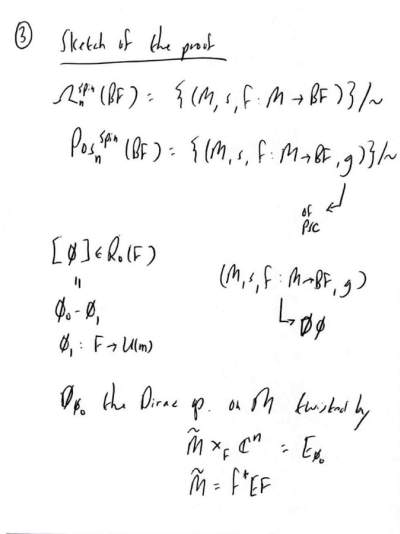 ③ Sketch of the proof
Ω_n^{spin}(BF) = {(M, s, f: M → BF)}/~
Pos_n^{spin}(BF) = {(M, s, f: M → BF, g)}/~
of
PSC
[ø] ∈ R_0(F)
=
ø_0 - ø_1
ø_1 : F → U(m)
(M, s, f: M → BF, g)
↳ D̸ø
D̸_{ø_0} the Dirac op. on M twisted by
M̃ ×_F ℂ^n = E_{ø_0}
M̃ = f*EF